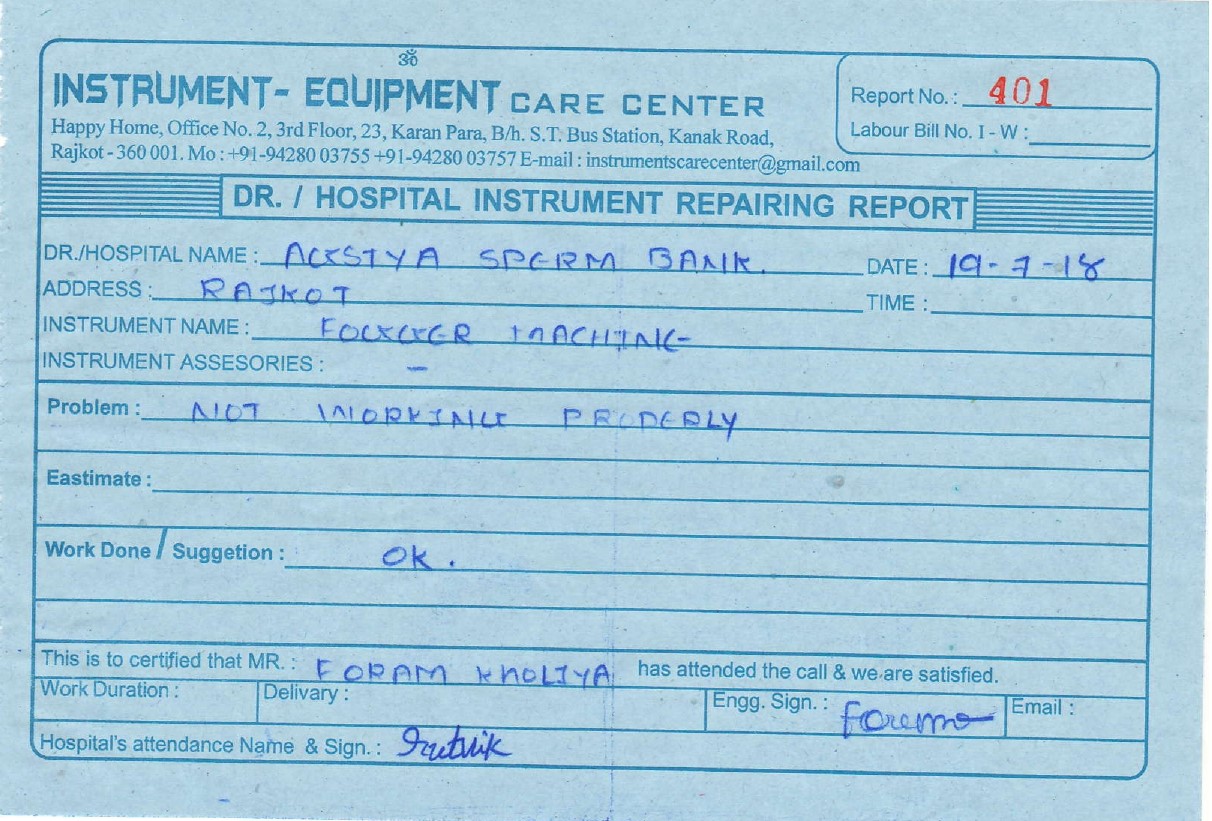 ॐ
INSTRUMENT- EQUIPMENT CARE CENTER
Happy Home, Office No. 2, 3rd Floor, 23, Karan Para, B/h. S.T. Bus Station, Kanak Road,
Rajkot - 360 001. Mo : +91-94280 03755 +91-94280 03757 E-mail : instrumentscarecenter@gmail.com
Report No. : 401
Labour Bill No. I - W :
DR. / HOSPITAL INSTRUMENT REPAIRING REPORT
DR./HOSPITAL NAME : SPERM BANK. DATE : 19-7-18
ADDRESS : RAJKOT TIME :
INSTRUMENT NAME : FOGGER MACHINE
INSTRUMENT ASSESORIES : -
Problem : NOT WORKING PROPERLY
Eastimate :
Work Done / Suggetion : OK.
This is to certified that MR. : FORAM KHOLIYA has attended the call & we are satisfied.
Work Duration : Delivary : Engg. Sign. : Email :
Hospital's attendance Name & Sign. :